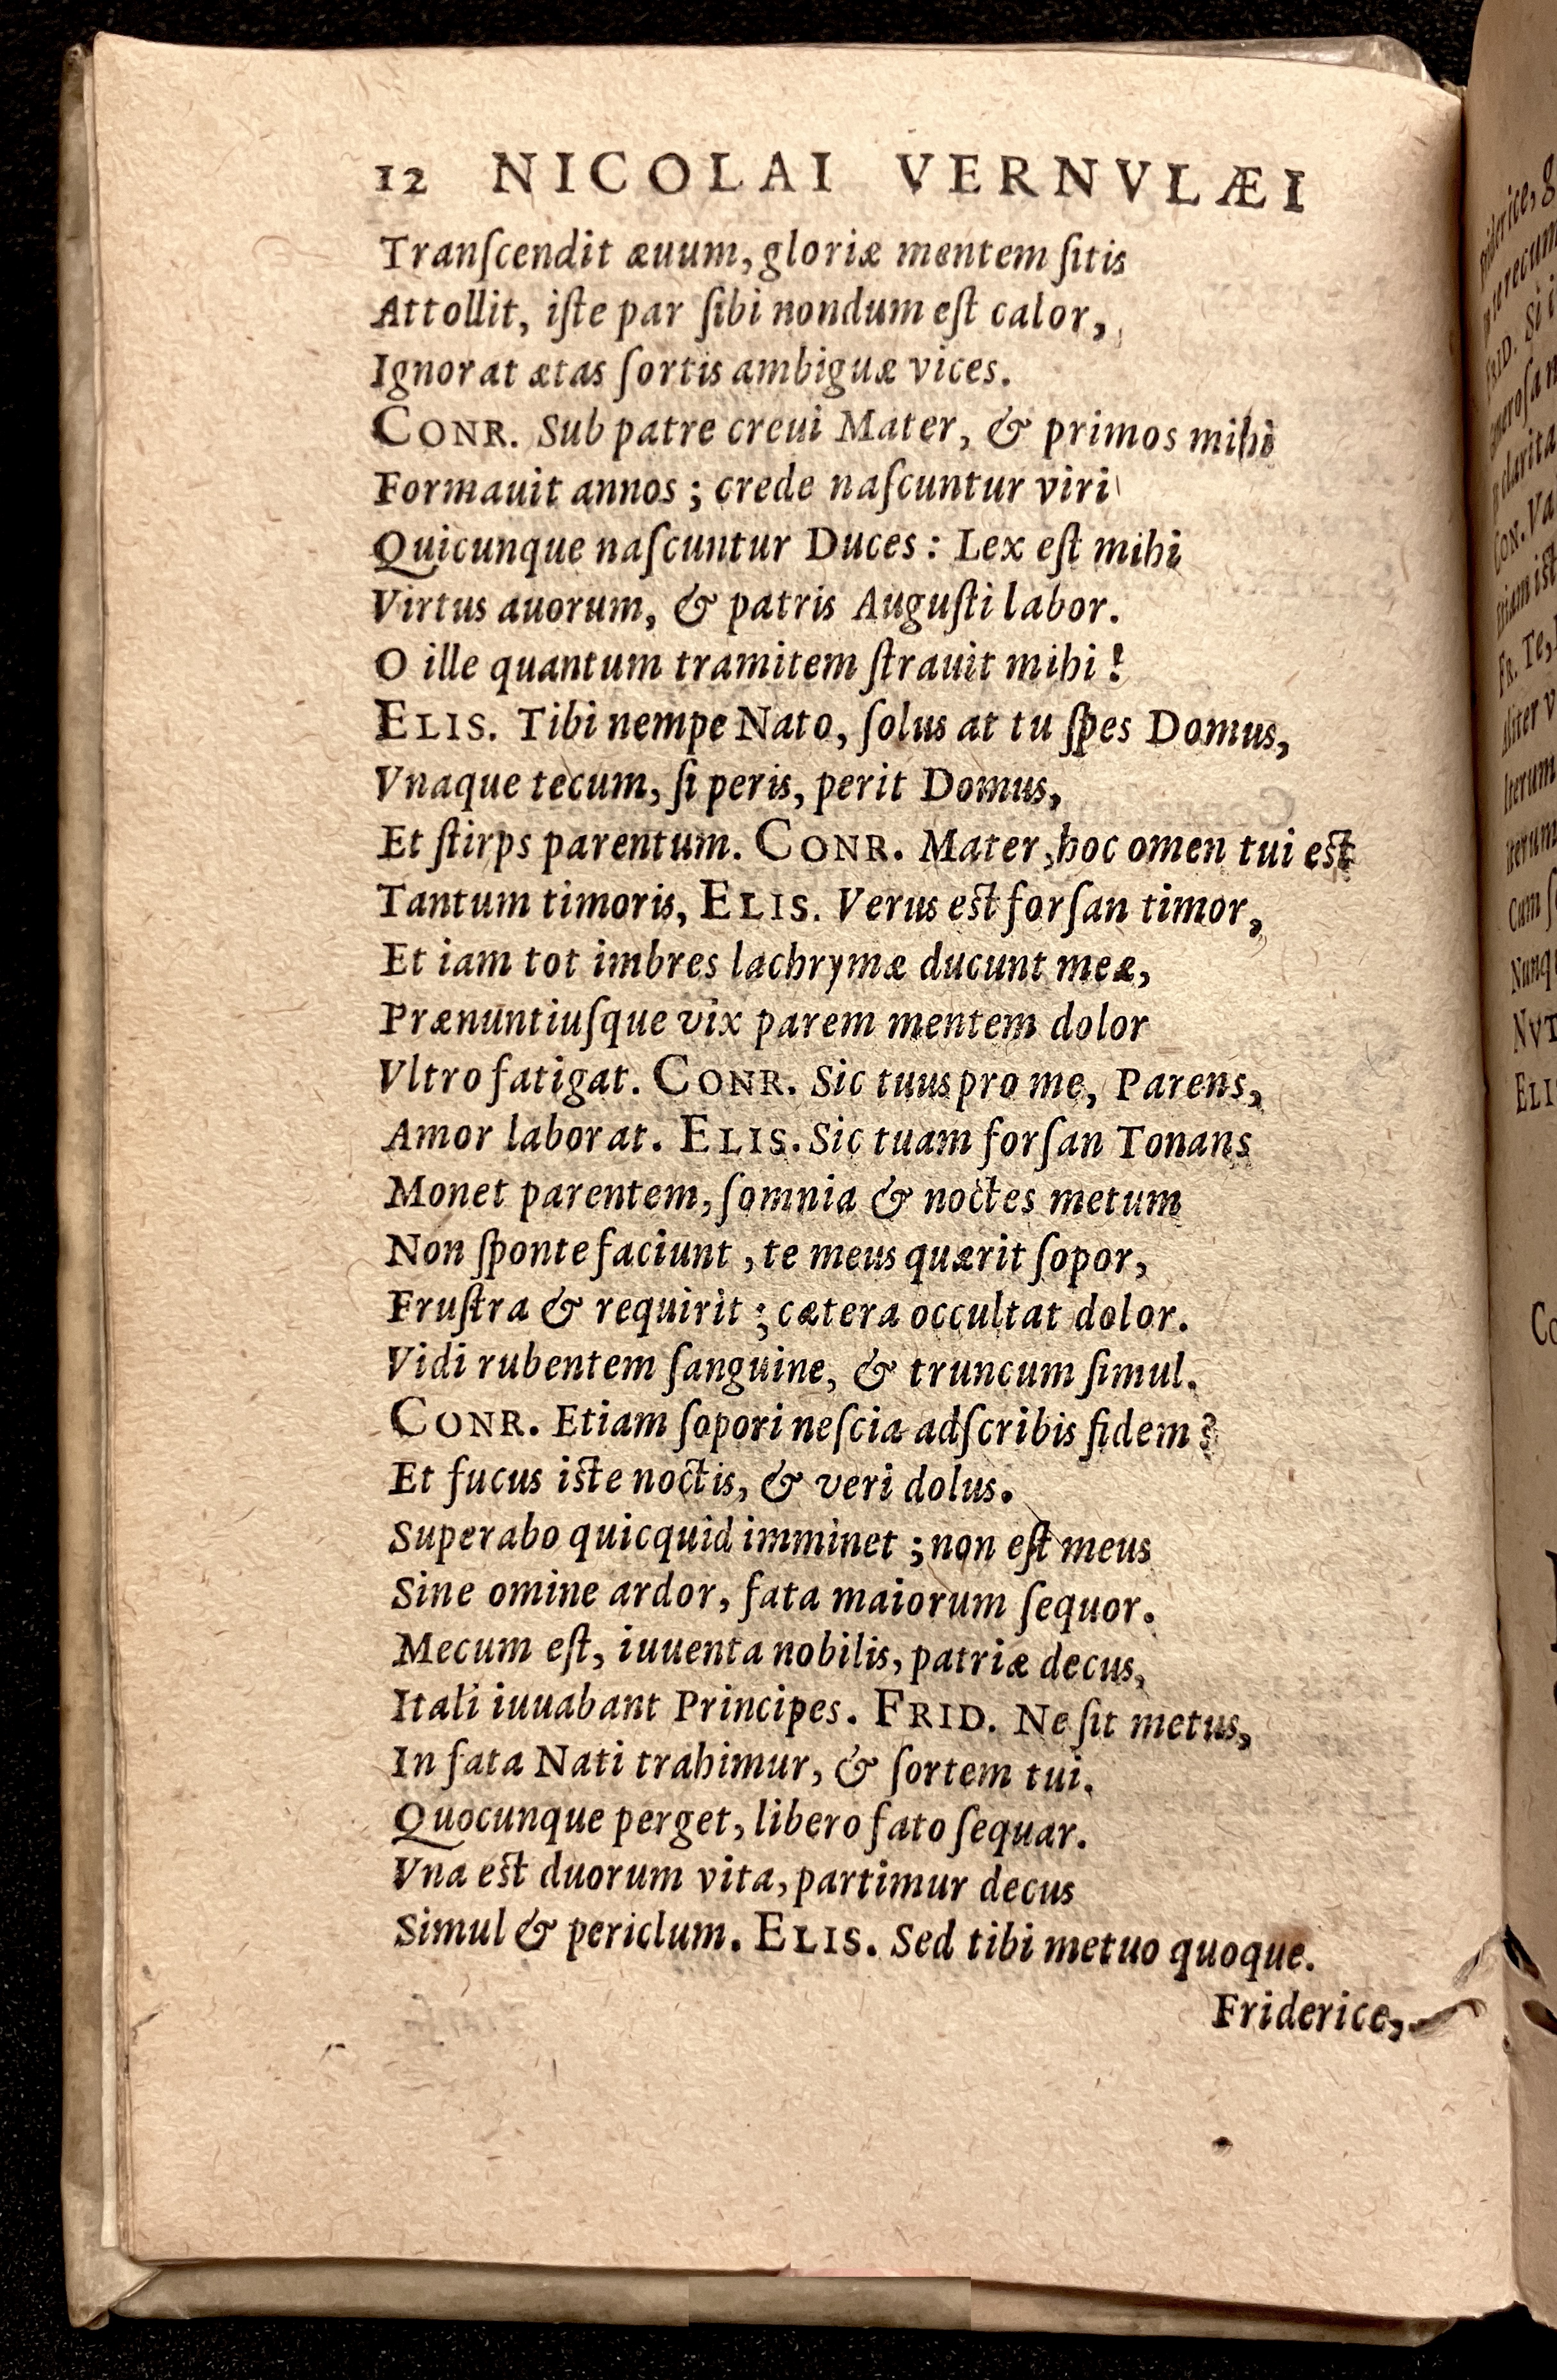 12 NICOLAI VERNVLÆI
Tranſcendit æuum, gloriæ mentem ſitis
Attollit, iſte par ſibi nondum eſt calor,
Ignorat ætas ſortis ambiguæ vices.
CONR. Sub patre creui Mater, & primos mihi
Formauit annos ; crede naſcuntur viri
Quicunque naſcuntur Duces : Lex eſt mihi
Virtus auorum, & patris Auguſti labor.
O ille quantum tramitem ſtrauit mihi !
ELIS. Tibi nempe Nato, ſolus at tu ſpes Domus,
Vnaque tecum, ſi peris, perit Domus,
Et ſtirps parentum. CONR. Mater, hoc omen tui est
Tantum timoris, ELIS. Verus est forſan timor,
Et iam tot imbres lachrymæ ducunt meæ,
Prænuntiuſque vix parem mentem dolor
Vltro fatigat. CONR. Sic tuus pro me, Parens,
Amor laborat. ELIS. Sic tuam forſan Tonans
Monet parentem, ſomnia & noctes metum
Non ſponte faciunt , te meus quærit ſopor,
Fruſtra & requirit ; cætera occultat dolor.
Vidi rubentem ſanguine, & truncum ſimul.
CONR. Etiam ſopori neſcia adſcribis fidem ?
Et fucus iste noctis, & veri dolus.
Superabo quicquid imminet ; non eſt meus
Sine omine ardor, fata maiorum ſequor.
Mecum eſt, iuuenta nobilis, patriæ decus,
Itali iuuabant Principes. FRID. Ne ſit metus,
In fata Nati trahimur, & ſortem tui.
Quocunque perget, libero fato ſequar.
Vna est duorum vita, partimur decus
Simul & periclum. ELIS. Sed tibi metuo quoque.
Friderice,